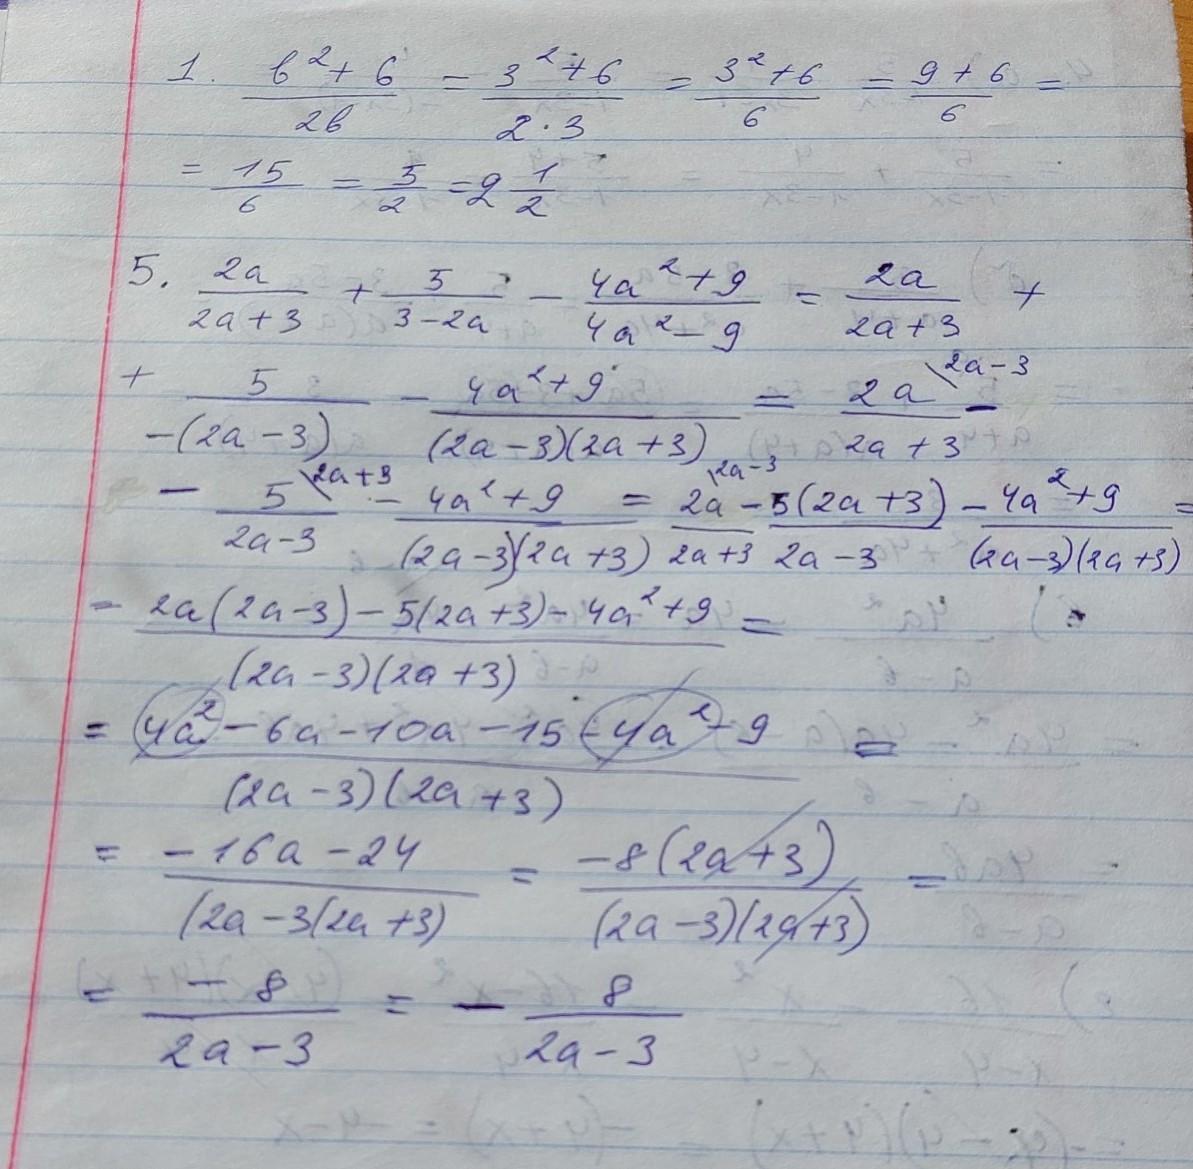 1. (b² + 6)/(2b) = (3² + 6)/(2 · 3) = (3² + 6)/6 = (9 + 6)/6 =
= 15/6 = 5/2 = 2 1/2
5. 2a/(2a + 3) + 5/(3 - 2a) - (4a² + 9)/(4a² - 9) = 2a/(2a + 3) +
+ 5/(-(2a - 3)) - (4a² + 9)/((2a - 3)(2a + 3)) = 2a\2a - 3/(2a + 3) -
- 5\2a + 3/(2a - 3) - (4a² + 9)/((2a - 3)(2a + 3)) = 2a\2a - 3/(2a + 3) - 5(2a + 3)/(2a - 3) - (4a² + 9)/((2a - 3)(2a + 3)) =
= (2a(2a - 3) - 5(2a + 3) - 4a² + 9)/((2a - 3)(2a + 3)) =
= (4a² - 6a - 10a - 15 - 4a² - 9)/((2a - 3)(2a + 3)) =
= (-16a - 24)/((2a - 3(2a + 3)) = (-8(2a + 3))/((2a - 3)(2a + 3)) =
= (-8)/(2a - 3) = - 8/(2a - 3)